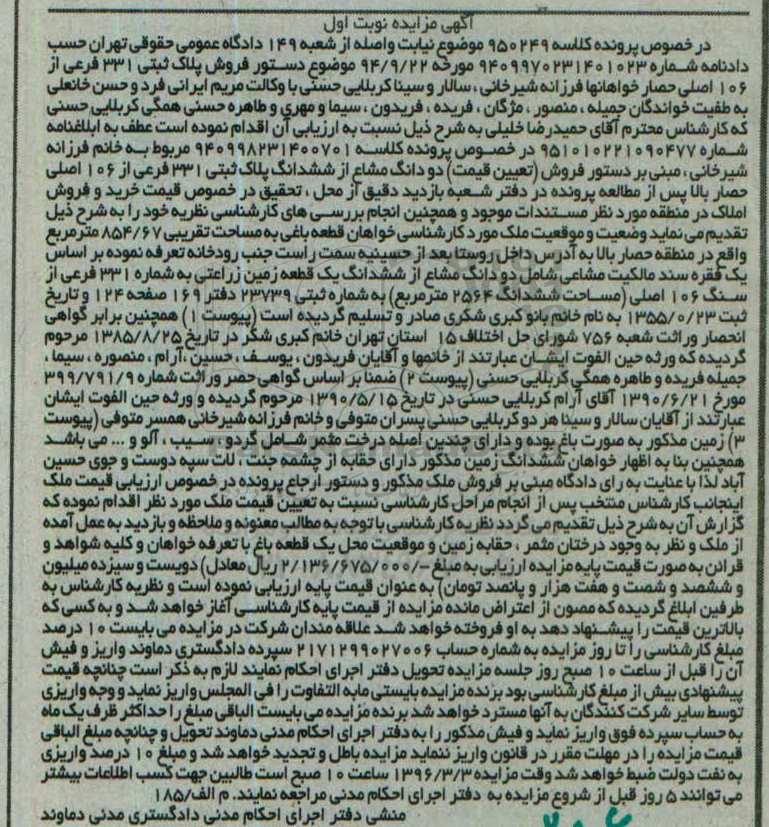 آگهی مزایده نوبت اول
در خصوص پرونده کلاسه ۹۵۰۲۴۹ موضوع نیابت واصله از شعبه ۱۴۹ دادگاه عمومی حقوقی تهران حسب
دادنامه شماره ۹۴۰۹۹۷۰۲۳۱۴۰۱۰۲۳ مورخه ۹۴/۹/۲۲ موضوع دستور فروش پلاک ثبتی ۳۳۱ فرعی از
۱۰۶ اصلی حصار خواهانها فرزانه شیرخانی ، سالار و سینا کربلایی حسنی با وکالت مریم ایرانی فرد و حسن خانعلی
به طفیت خواندگان جمیله ، منصور ، مژگان ، فریده ، فریدون ، سیما و مهری و طاهره حسنی همگی کربلایی حسنی
که کارشناس محترم آقای حمیدرضا خلیلی به شرح ذیل نسبت به ارزیابی آن اقدام نموده است عطف به ابلاغنامه
شماره ۹۵۱۰۱۰۲۲۱۰۹۰۴۷۷ در خصوص پرونده کلاسه ۹۴۰۹۹۸۲۳۱۴۰۰۷۰۱ مربوط به خانم فرزانه
شیرخانی ، مبنی بر دستور فروش (تعیین قیمت) دو دانگ مشاع از ششدانگ پلاک ثبتی ۳۳۱ فرعی از ۱۰۶ اصلی
حصار بالا پس از مطالعه پرونده در دفتر شعبه بازدید دقیق از محل ، تحقیق در خصوص قیمت خرید و فروش
املاک در منطقه مورد نظر مستندات موجود و همچنین انجام بررسی های کارشناسی نظریه خود را به شرح ذیل
تقدیم می نماید وضعیت و موقعیت ملک مورد کارشناسی خواهان قطعه باغی به مساحت تقریبی ۸۵۴/۶۷ مترمربع
واقع در منطقه حصار بالا به آدرس داخل روستا بعد از حسینیه سمت راست جنب رودخانه تعرفه نموده بر اساس
یک فقره سند مالکیت مشاعی شامل دو دانگ مشاع از ششدانگ یک قطعه زمین زراعتی به شماره ۳۳۱ فرعی از
سنگ ۱۰۶ اصلی (مساحت ششدانگ ۲۵۶۴ مترمربع) به شماره ثبتی ۲۳۷۳۹ دفتر ۱۶۹ صفحه ۱۲۴ و تاریخ
ثبت ۱۳۵۵/۰/۲۳ به نام خانم بانو کبری شکری صادر و تسلیم گردیده است (پیوست ۱) همچنین برابر گواهی
انحصار وراثت شعبه ۷۵۶ شورای حل اختلاف ۱۵ استان تهران خانم کبری شکر در تاریخ ۱۳۸۵/۸/۲۵ مرحوم
گردیده که ورثه حین الفوت ایشان عبارتند از خانمها و آقایان فریدون ، یوسف ، حسین ،آرام ، منصوره ، سیما ،
جمیله فریده و طاهره همگی کربلایی حسنی (پیوست ۲) ضمنا بر اساس گواهی حصر وراثت شماره ۳۹۹/۷۹۱/۹
مورخ ۱۳۹۰/۶/۲۱ آقای آرام کربلایی حسنی در تاریخ ۱۳۹۰/۵/۱۵ مرحوم گردیده و ورثه حین الفوت ایشان
عبارتند از آقایان سالار و سینا هر دو کربلایی حسنی پسران متوفی و خانم فرزانه شیرخانی همسر متوفی (پیوست
۳) زمین مذکور به صورت باغ بوده و دارای چندین اصله درخت مثمر شامل گردو ، سیب ، آلو و ... می باشد
همچنین بنا به اظهار خواهان ششدانگ زمین مذکور دارای حقابه از چشمه جنت ، لات سپه دوست و جوی حسین
آباد لذا با عنایت به رای دادگاه مبنی بر فروش ملک مذکور و دستور ارجاع پرونده در خصوص ارزیابی قیمت ملک
اینجانب کارشناس منتخب پس از انجام مراحل کارشناسی نسبت به تعیین قیمت ملک مورد نظر اقدام نموده که
گزارش آن به شرح ذیل تقدیم می گردد نظریه کارشناسی با توجه به مطالب معنونه و ملاحظه و بازدید به عمل آمده
از ملک و نظر به وجود درختان مثمر ، حقابه زمین و موقعیت محل یک قطعه باغ با تعرفه خواهان و کلیه شواهد و
قرائن به صورت قیمت پایه مزایده ارزیابی به مبلغ -/۲/۱۳۶/۶۷۵/۰۰۰ ریال معادل) دویست و سیزده میلیون
و ششصد و شصت و هفت هزار و پانصد تومان) به عنوان قیمت پایه ارزیابی نموده است و نظریه کارشناس به
طرفین ابلاغ گردیده که مصون از اعتراض مانده مزایده از قیمت پایه کارشناسی آغاز خواهد شد و به کسی که
بالاترین قیمت را پیشنهاد دهد به او فروخته خواهد شد علاقه مندان شرکت در مزایده می بایست ۱۰ درصد
مبلغ کارشناسی را تا روز مزایده به شماره حساب ۲۱۷۱۲۹۹۰۲۷۰۰۶ سپرده دادگستری دماوند واریز و فیش
آن را قبل از ساعت ۱۰ صبح روز جلسه مزایده تحویل دفتر اجرای احکام نمایند لازم به ذکر است چنانچه قیمت
پیشنهادی بیش از مبلغ کارشناسی بود برنده مزایده بایستی مابه التفاوت را فی المجلس واریز نماید و وجه واریزی
توسط سایر شرکت کنندگان به آنها مسترد خواهد شد برنده مزایده می بایست الباقی مبلغ را حداکثر ظرف یک ماه
به حساب سپرده فوق واریز نماید و فیش مذکور را به دفتر اجرای احکام مدنی دماوند تحویل و چنانچه مبلغ الباقی
قیمت مزایده را در مهلت مقرر در قانون واریز ننماید مزایده باطل و تجدید خواهد شد و مبلغ ۱۰ درصد واریزی
به نفت دولت ضبط خواهد شد وقت مزایده ۱۳۹۶/۳/۳ ساعت ۱۰ صبح است طالبین جهت کسب اطلاعات بیشتر
می توانند ۵ روز قبل از شروع مزایده به دفتر اجرای احکام مدنی مراجعه نمایند. م الف/۱۸۵
منشی دفتر اجرای احکام مدنی دادگستری مدنی دماوند